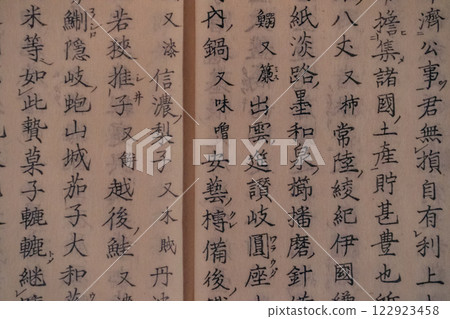 濟公事君無損自有利上
擔集諸國土産貯甚豊也
八丈又柿常陸綾紀伊國
紙淡路墨和泉櫛播磨針
鰯又簾出雲莚讃岐圓座
内鍋又味噌安藝榑備後
又漆信濃梨子又木賊丹
若狭椎子又餅越後鮭又
鯏隠岐鮑山城茄子大和
米等如此贄菓子轆轆継
122923458